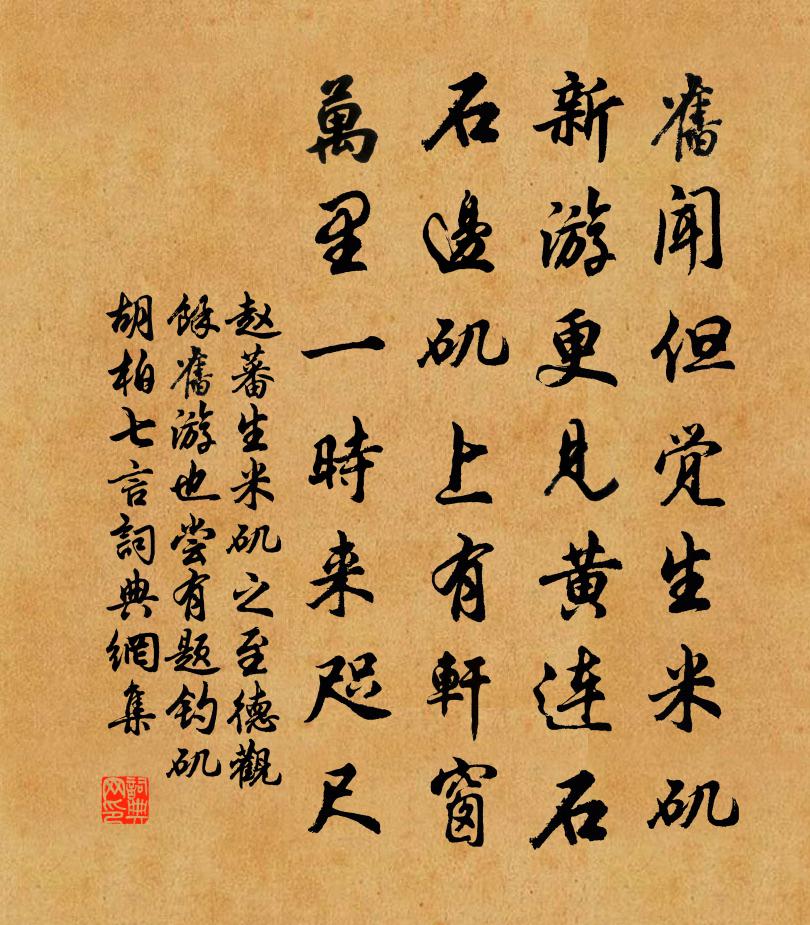 舊聞但觉生米矶
新游更見黄連石
石邊矶上有軒窗
萬里一時来咫尺
赵蕃生米矶之至德觀
餘舊游也尝有题钓矶
胡柏七言詞典網集
詞典网印